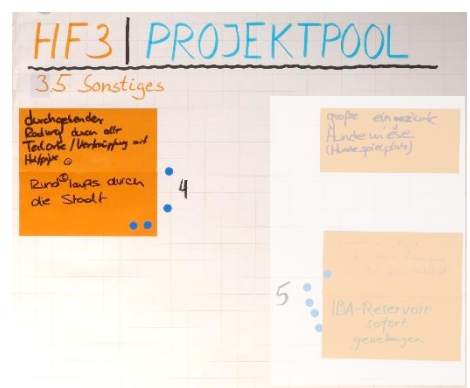 HF3 | PROJEKTPOOL
3.5 Sonstiges
durchgehender
Radweg durch alle
Teilorte / Verknüpfung mit
Rundläufe durch
die Stadt
4
große eingezäunte
Hundewiese
(Hundespielplatz)
5
IBA-Reservoir
sofort
genehmigen